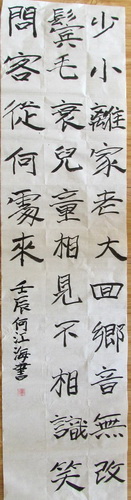 少小離家老大回鄉音無改
鬢毛衰兒童相見不相識笑
問客從何處來
壬辰何江海書